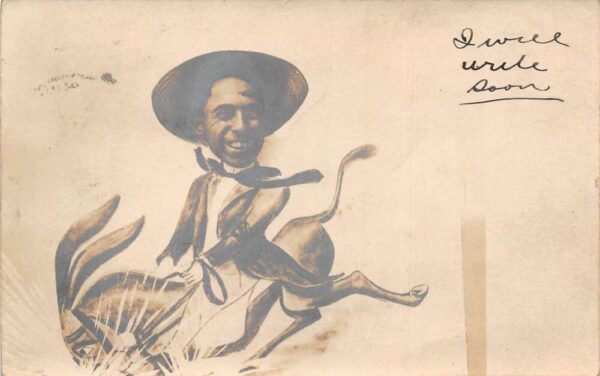 I will
write
soon